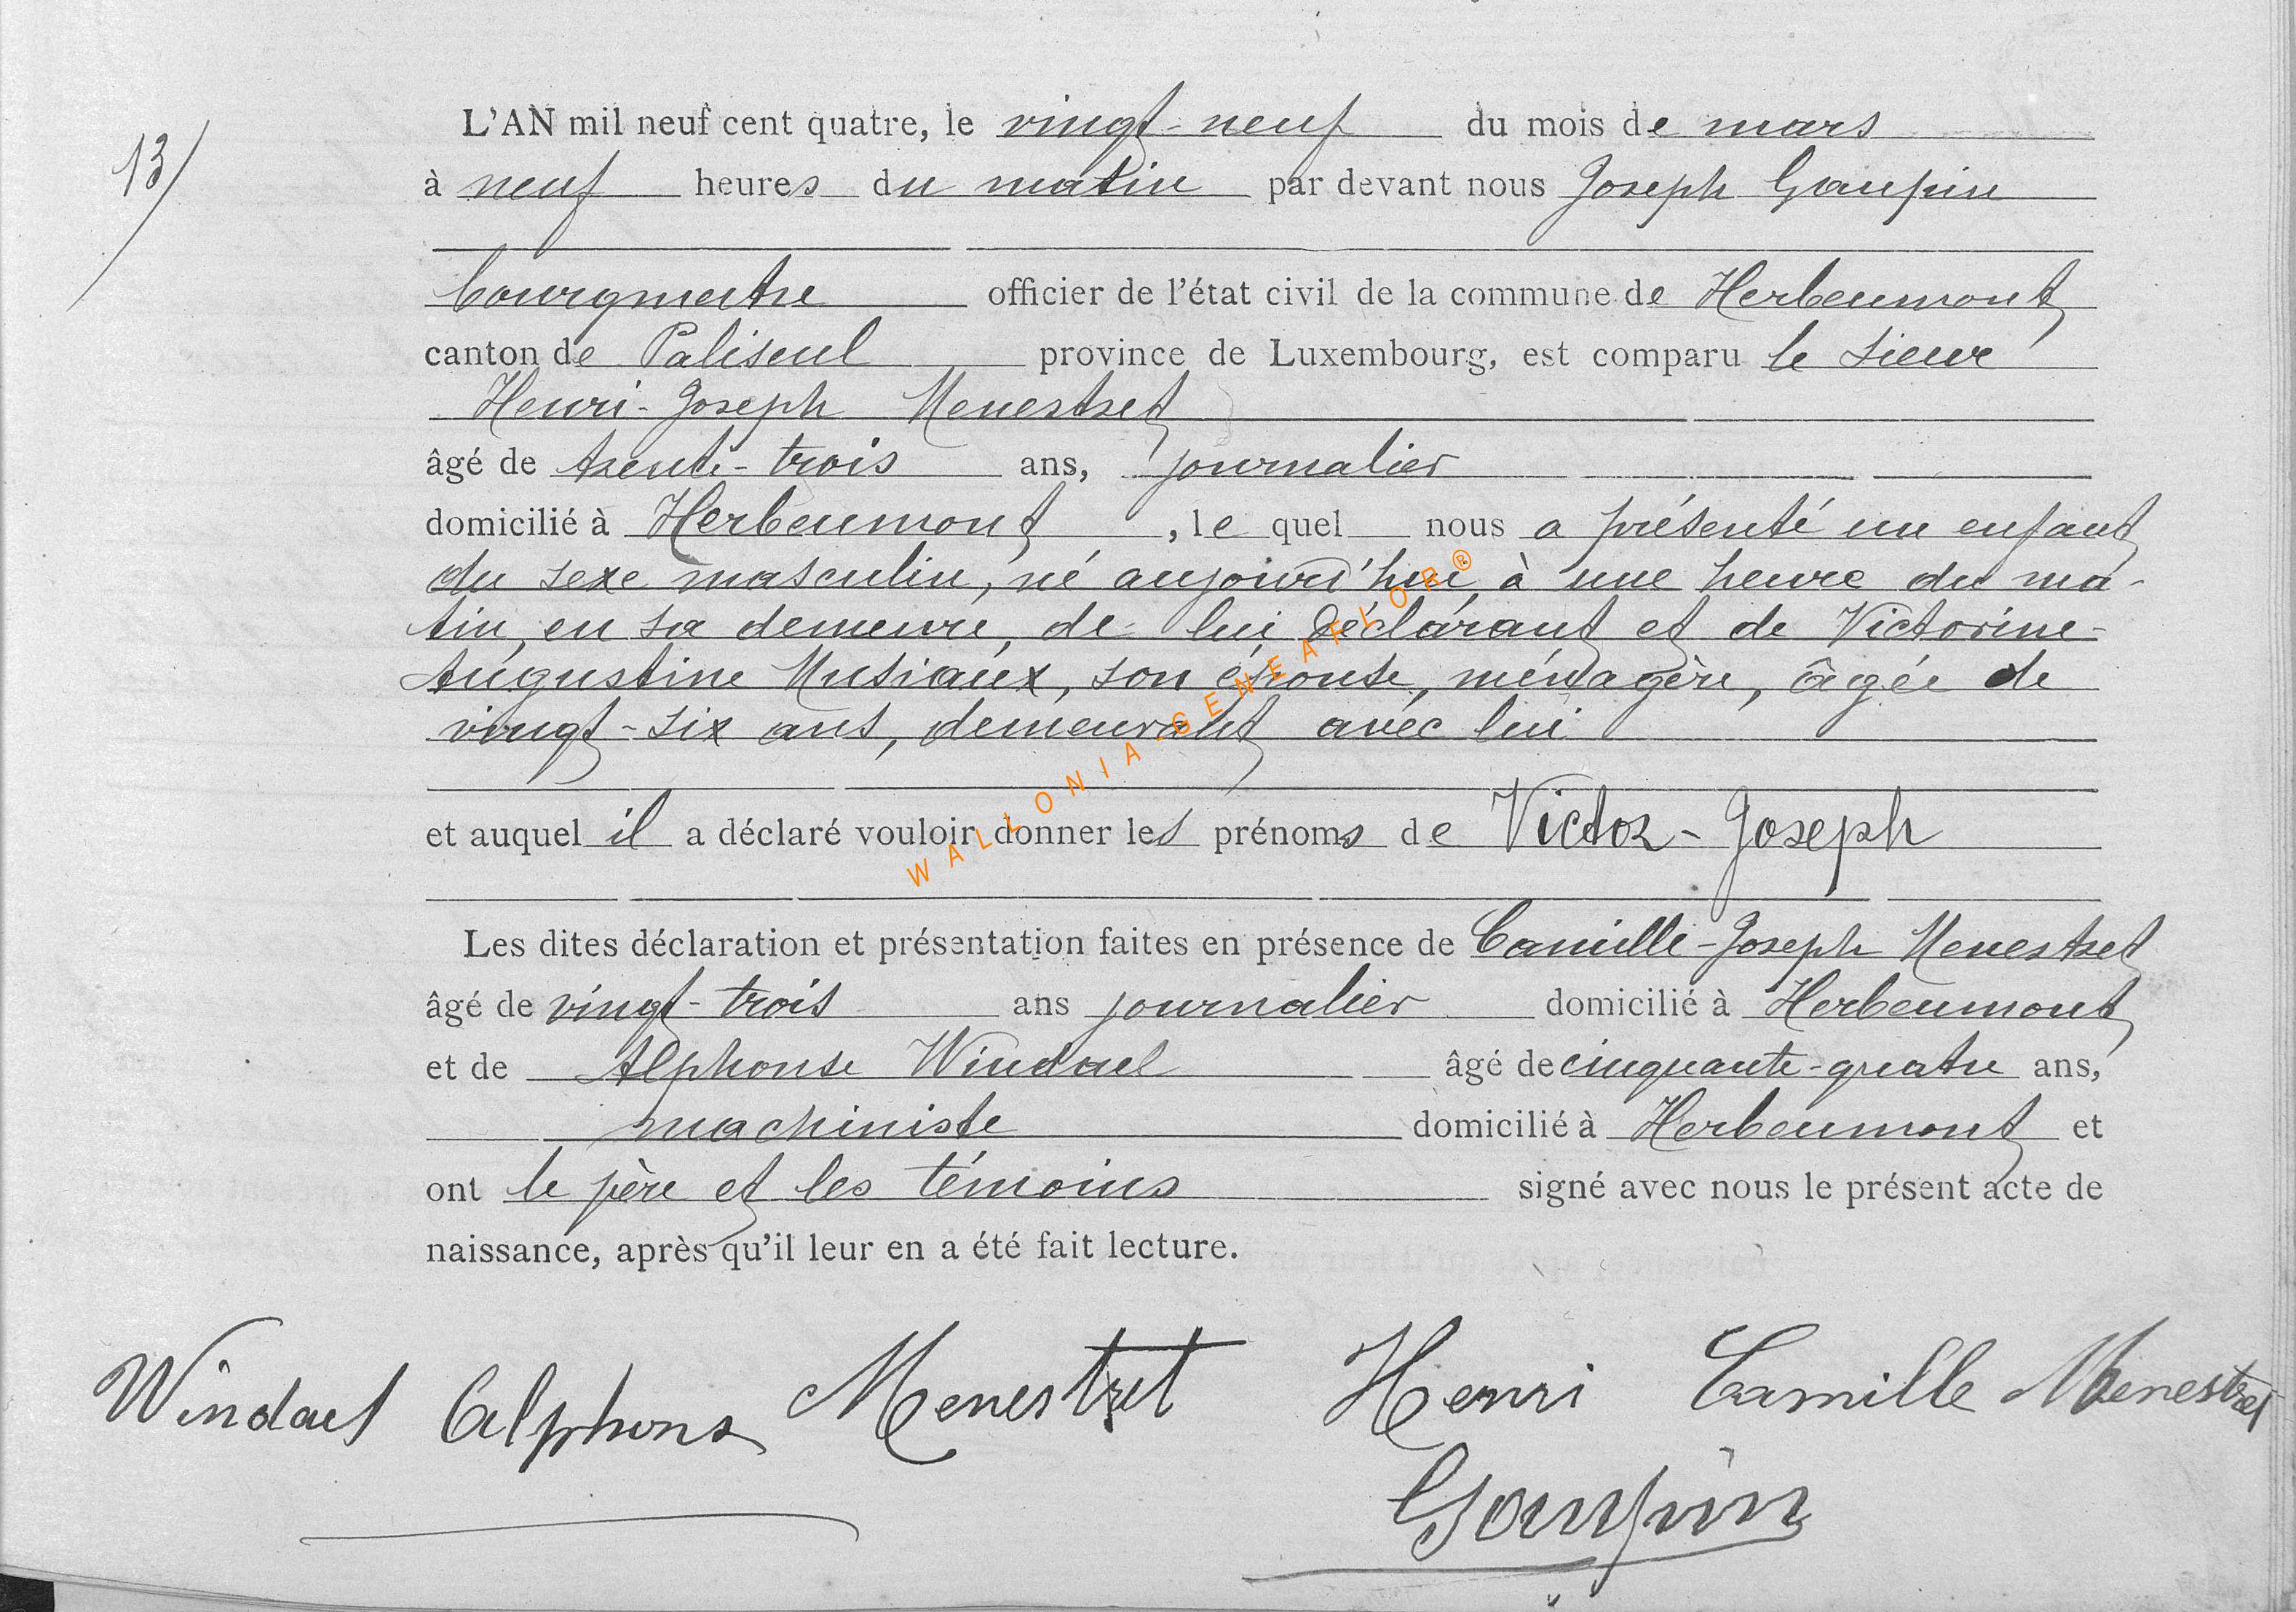 13/
L'AN mil neuf cent quatre, le vingt-neuf du mois de mars
à neuf heures du matin par devant nous Joseph Goupin
bourgmestre officier de l'état civil de la commune de Herbeumont
canton de Paliseul province de Luxembourg, est comparu le sieur
Henri-Joseph Menestret
âgé de trente-trois ans, journalier
domicilié à Herbeumont, le quel nous a présenté un enfant
du sexe masculin, né aujourd'hui, à une heure du ma-
tin, en sa demeure, de lui déclarant et de Victorine-
Augustine Musiaux, son épouse, ménagère, âgée de
vingt-six ans, demeurant avec lui
et auquel il a déclaré vouloir donner les prénoms de Victor-Joseph
Les dites déclaration et présentation faites en présence de Camille-Joseph Menestret
âgé de vingt-trois ans journalier domicilié à Herbeumont
et de Alphonse Windael âgé de cinquante-quatre ans,
machiniste domicilié à Herbeumont et
ont le père et les témoins signé avec nous le présent acte de
naissance, après qu'il leur en a été fait lecture.
Windael Alphons Menestret Henri Camille Menestret
Goupin
WALLONIA-GENEAFLOR®